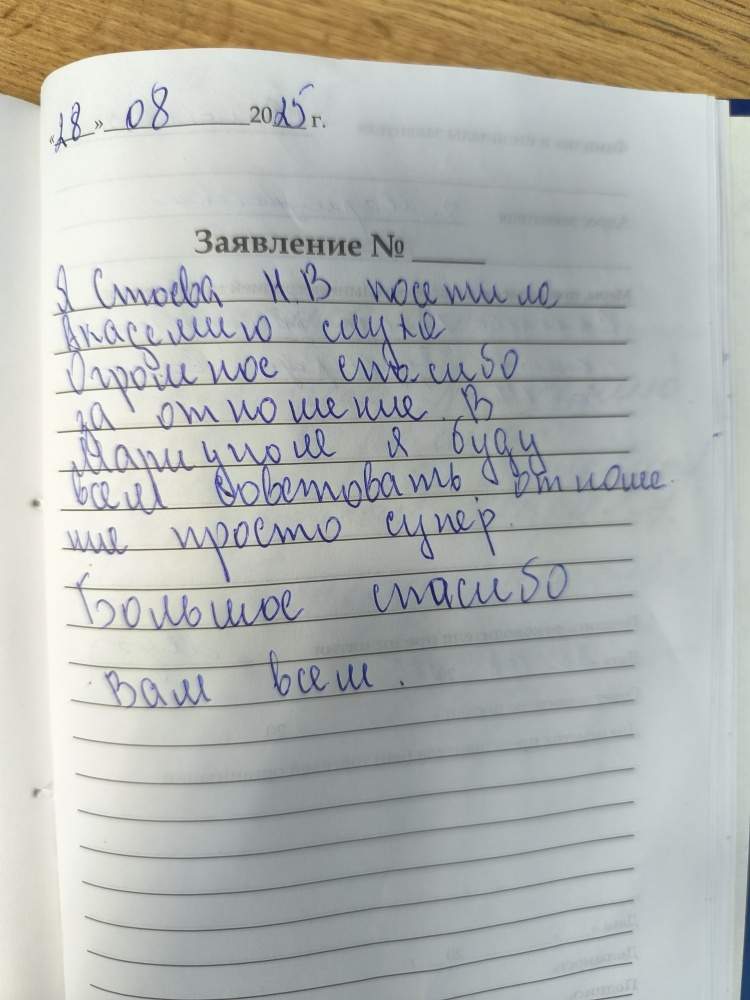 «28» 08 2025 г.
Заявление № ____
Я Стоева Н.В посетила
Академию слуха
Огромное спасибо
за отношение. В
Мариуполе я буду
всем советовать отноше-
ние просто супер.
Большое спасибо
Вам всем.